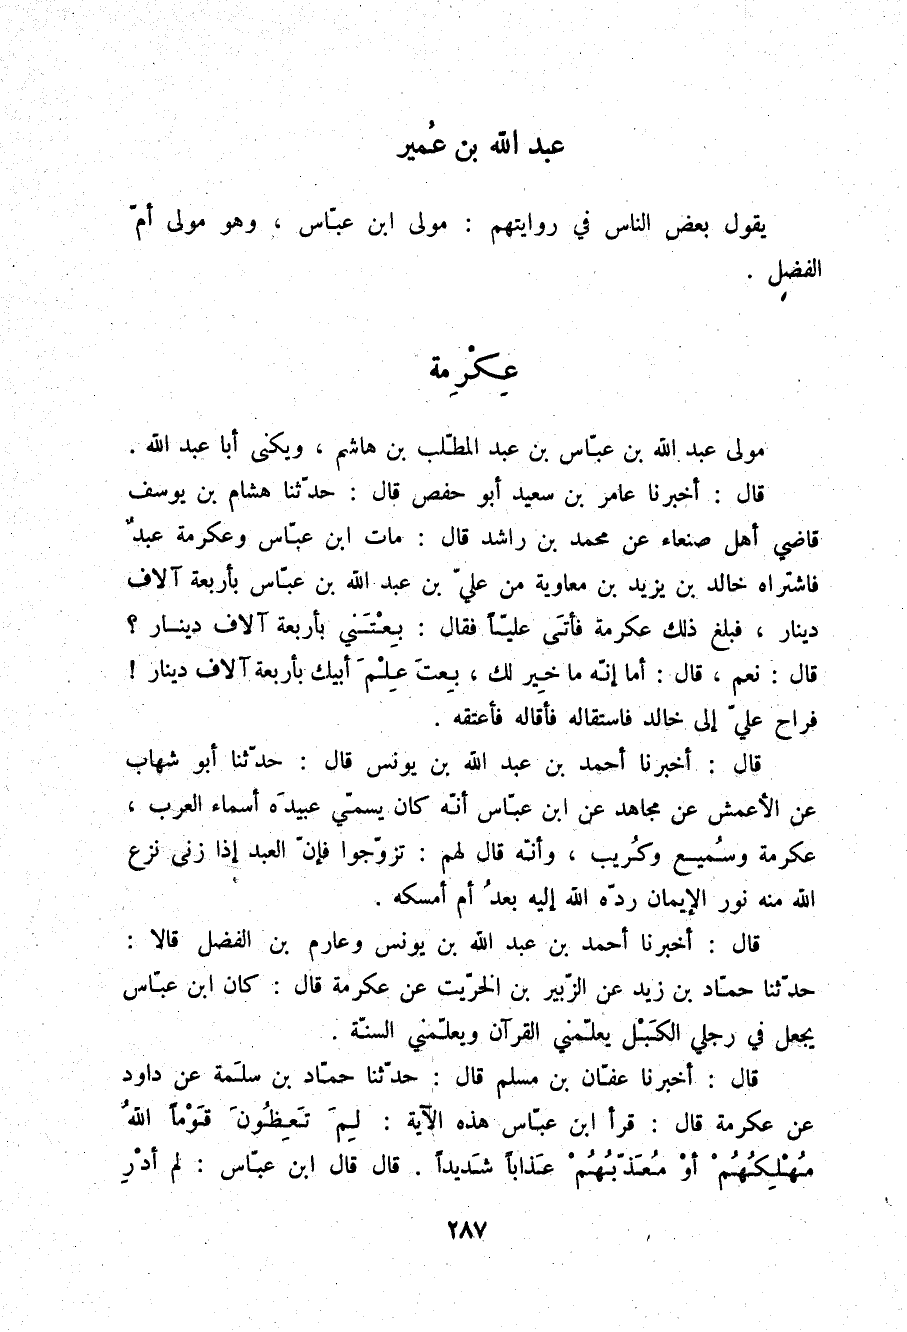 عبد الله بن عُمير
يقول بعض الناس في روايتهم : مولى ابن عبّاس ، وهو مولى أمّ
الفضل .
عِكْرِمة
مولى عبد الله بن عبّاس بن عبد المطّلب بن هاشم ، ويكنى أبا عبد الله .
قال : أخبرنا عامر بن سعيد أبو حفص قال : حدّثنا هشام بن يوسف
قاضي أهل صنعاء عن محمد بن راشد قال : مات ابن عبّاس وعكرمة عبدٌ
فاشتراه خالد بن يزيد بن معاوية من عليّ بن عبد الله بن عبّاس بأربعة آلاف
دينار ، فبلغ ذلك عكرمة فأتَى عليّاً فقال : بِعْتَني بأربعة آلاف دينار ؟
قال : نعم ، قال : أما إنّه ما خِير لك ، بِعتَ عِلْمَ أبيك بأربعة آلاف دينار !
فراح عليّ إلى خالد فاستقاله فأقاله فأعتقه .
قال : أخبرنا أحمد بن عبد الله بن يونس قال : حدّثنا أبو شهاب
عن الأعمش عن مجاهد عن ابن عبّاس أنّه كان يسمّي عبيدَه أسماء العرب ،
عكرمة وسُميع وكُريب ، وأنّه قال لهم : تزوّجوا فإنّ العبد إذا زنى نزع
الله منه نور الإيمان ردّه الله إليه بعدُ أم أمسكه .
قال : أخبرنا أحمد بن عبد الله بن يونس وعارم بن الفضل قالا :
حدّثنا حمّاد بن زيد عن الزّبير بن الخرّيت عن عكرمة قال : كان ابن عبّاس
يجعل في رجلي الكَبْل يعلّمني القرآن ويعلّمني السنّة .
قال : أخبرنا عفّان بن مسلم قال : حدّثنا حمّاد بن سلَمة عن داود
عن عكرمة قال : قرأ ابن عبّاس هذه الآية : لِمَ تَعِظُونَ قَوْماً اللهُ
مُهْلِكُهُمْ أوْ مُعَذّبُهُمْ عَذاباً شَديداً . قال قال ابن عبّاس : لم أدْرِ
٢٨٧